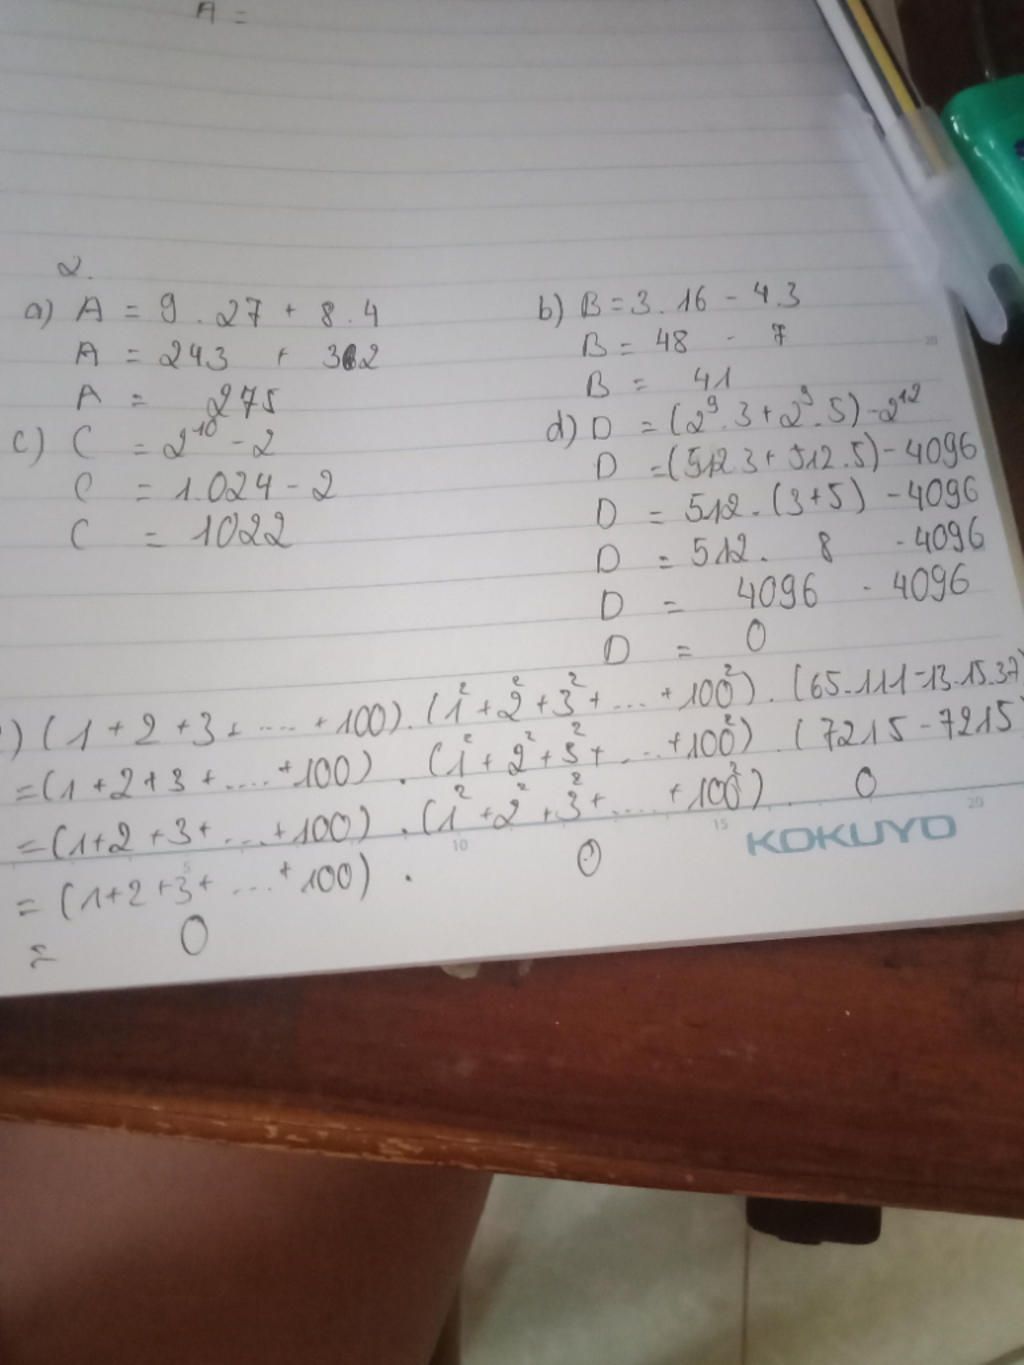 A =
2.
a) A = 9 . 27 + 8 . 4
A = 243 + 32
A = 275
b) B = 3 . 16 - 4.3
B = 48 - 7
B = 41
c) C = 2¹⁰ - 2
C = 1.024 - 2
C = 1022
d) D = (2⁹ . 3 + 2⁹ . 5) - 2¹²
D = (512.3 + 512.5) - 4096
D = 512 . (3+5) - 4096
D = 512 . 8 - 4096
D = 4096 - 4096
D = 0
) (1 + 2 + 3 + .... + 100) . (1² + 2² + 3² + ... + 100²) . (65.111 - 13.15.37)
= (1 + 2 + 3 + .... + 100) . (1² + 2² + 3² + ... + 100²) . (7215 - 7215)
= (1 + 2 + 3 + ... + 100) . (1² + 2² + 3² + .... + 100²) . 0
= (1 + 2 + 3 + ... + 100) . 0
= 0
5 10 15 20
KOKUYO